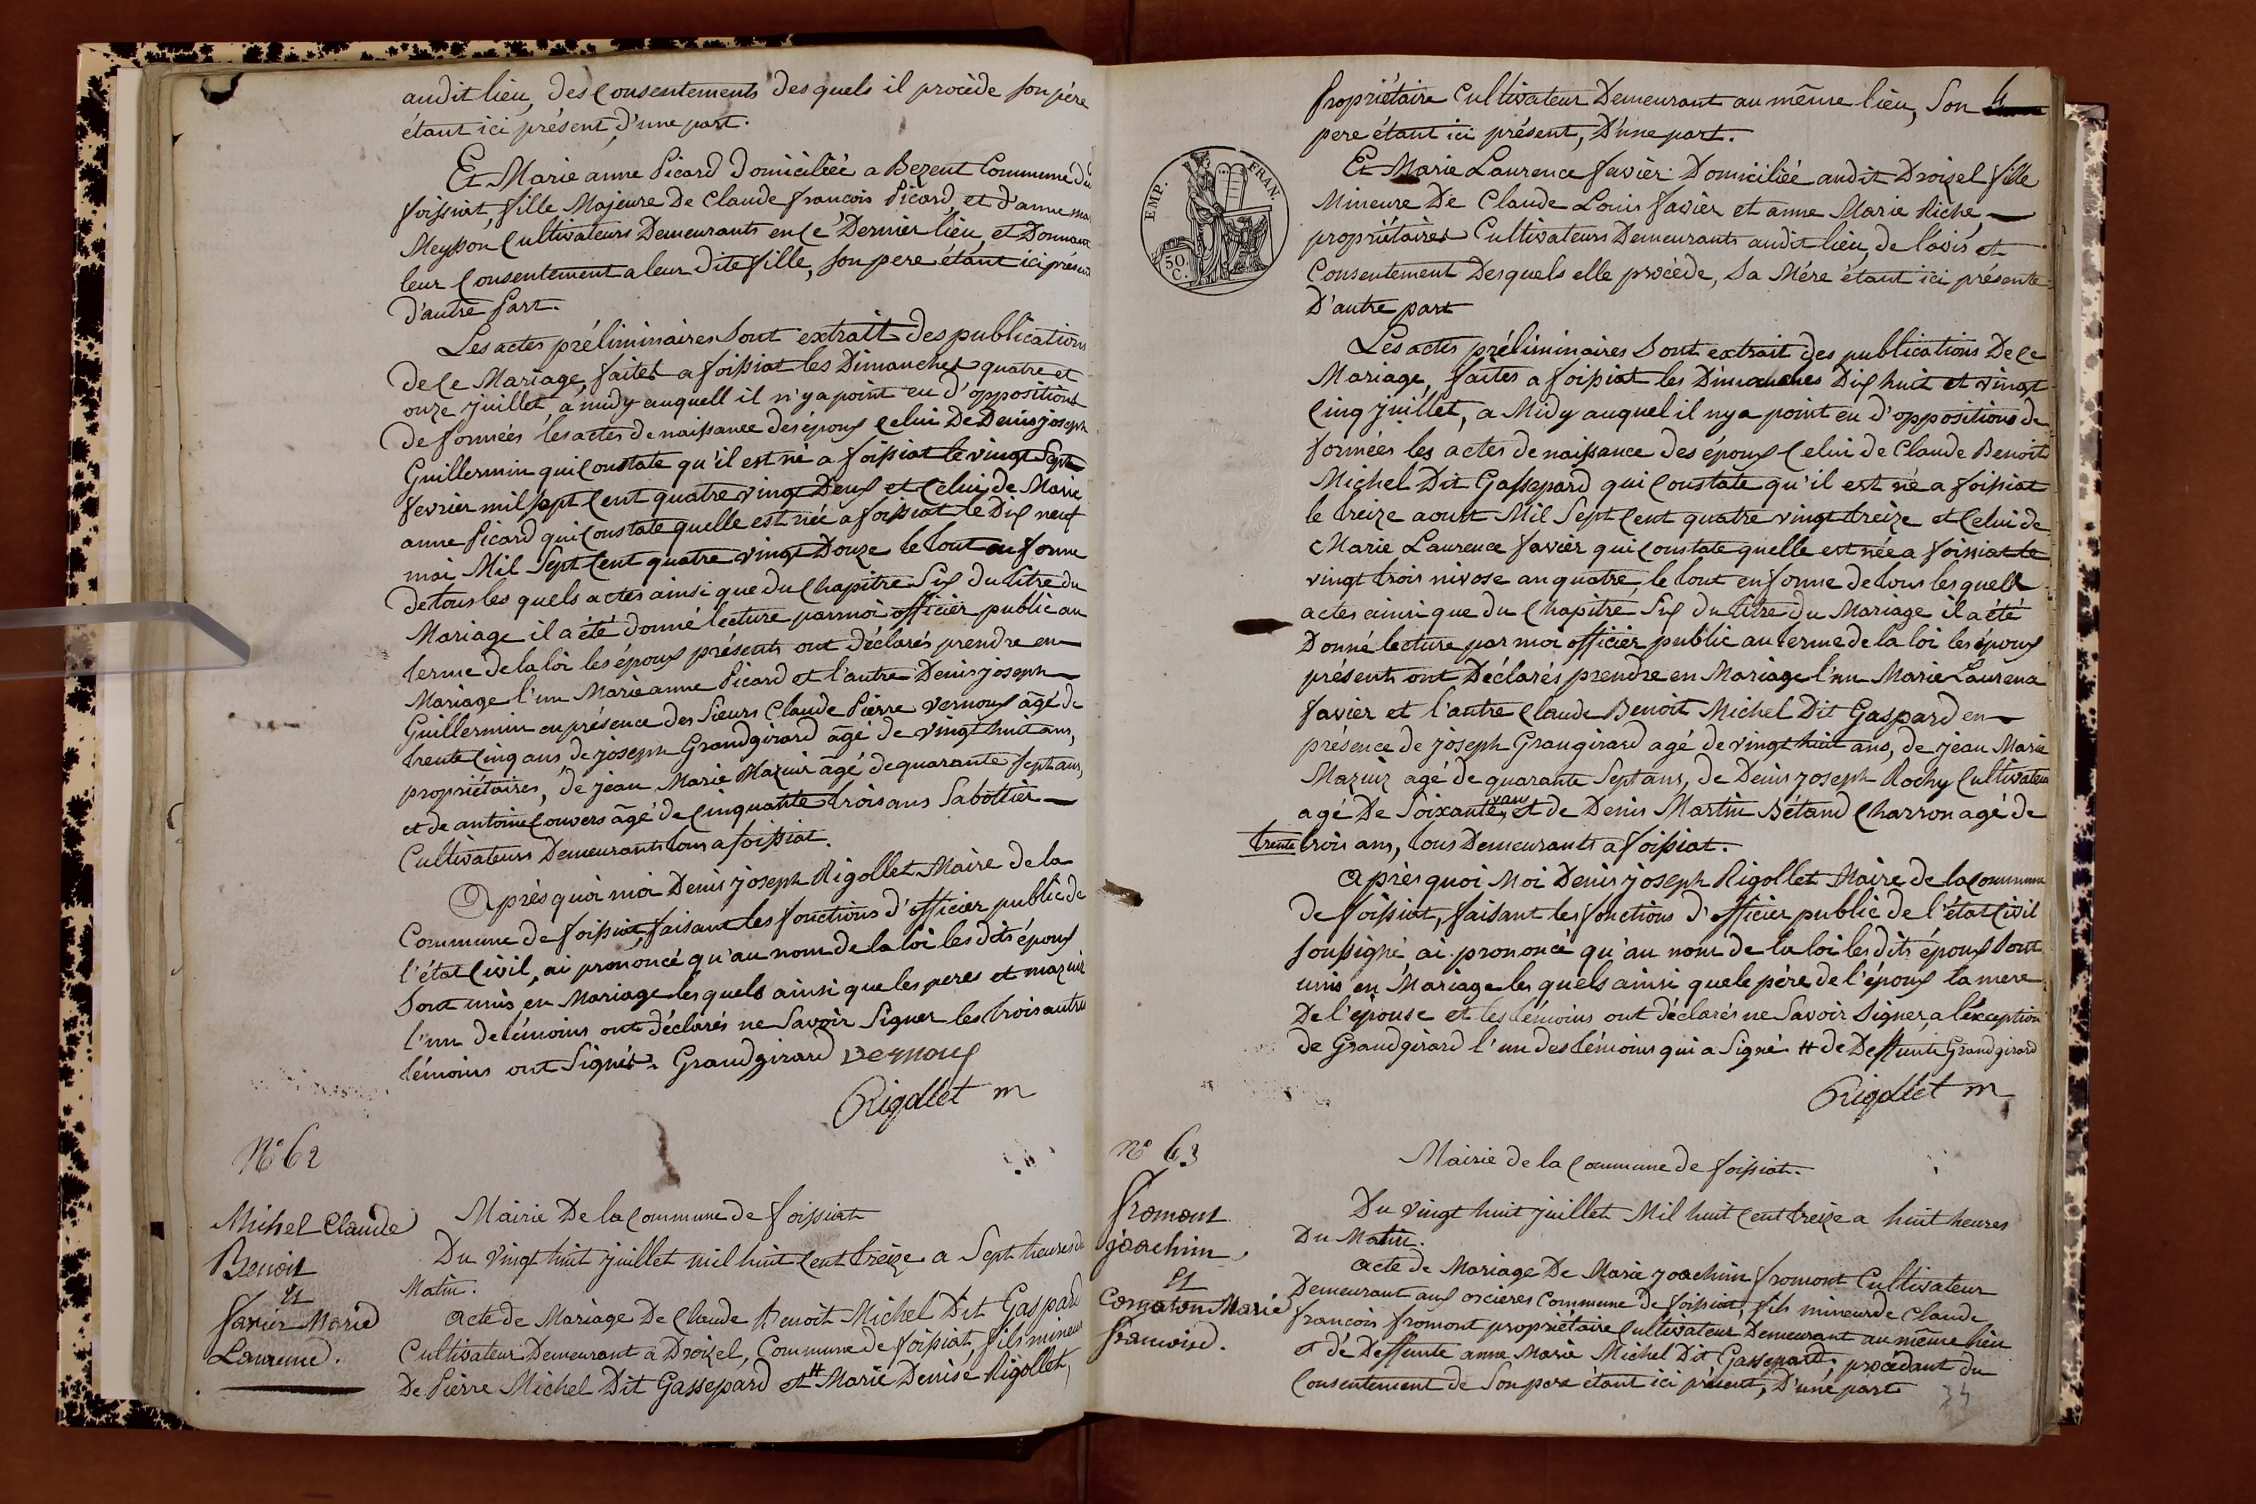 audit lieu, des Consentements desquels il procède son père
étant ici présent, d'une part.
Et Marie anne Picard Domiciliéé a Bezent Commune du
foissiat, fille Majeure De Claude francois Picard, et d'anne ma
Meysson Cultivateurs Demeurants en Cé Dernier lieu, et Donnant
leur Consentement a leur Dite fille, son pere étant ici présent
d'autre Part.
Les actes préliminaires Sont extrait des publications
de Ce Mariage, faites a foissiat les Dimanches quatre et
onze juillet, a midy auquell il n'y a point eu d'oppositions
de formées les actes de naissance des époux Celui De Denis joseph
Guillermin qui Constate qu'il est né a foissiat le vingt Sept
fevrier mil Sept Cent quatre vingt Deux et Celui de Marie
anne Picard qui Constate quelle est née a foissiat le Dix neuf
mai Mil Sept Cent quatre vingt Douze le tout en forme
De tous les quels actes ainsi que du Chapitre Six du titre du
Mariage il a été donné lecture par moi officier public au
terme de la loi les époux présents ont déclarés prendre en
Mariage l'un Marie anne Picard et l'autre Denis joseph
Guillermin en présence des Sieurs Claude Pierre Vernoux âgé de
trente Cinq ans, de joseph Grandgirard âgé de vingt huit ans,
propriétaires, de jean Marie Mazuir âgé de quarante sept ans,
et de antoine Convers âgé de Cinquante trois ans Sabottier
Cultivateurs Demeurants tous a foissiat.
Après quoi moi Denis joseph Rigollet Maire de la
Commune de foissiat, faisant les fonctions d'officier public de
l'état Civil, ai prononcé qu'au nom de la loi les dits époux
Sont unis en Mariage les quels ainsi que les peres et mazuir
l'un de témoins ont déclarés ne Savoir Signer les trois autres
témoins ont Signés. Grandgirard Vernoux
Rigollet m
N° 62
Michel Claude
Benoit
et
favier Marie
Laurence.
Mairie De la Commune de foissiat
Du vingt huit juillet mil huit Cent treize a Sept heures du
Matin.
acte de Mariage De Claude Benoit Michel Dit Gaspard
Cultivateur Demeurant a Droizel, Commune de foissiat, fils mineur
De Pierre Michel Dit Gassepard et # Marie Denise Rigollet,
Propriétaire Cultivateur Demeurant au même lieu, Son
pere étant ici présent, D'une part.
EMP. FRAN.
50. C.
Et Marie Laurence favier Domiciliéé audit Droizel fille
Mineure De Claude Louis favier et anne Marie Riche,
propriétaires Cultivateurs Demeurants audit lieu, de l'avis et
Consentement Desquels elle procède, Sa Mére étant ici présente
D'autre part
Les actes préliminaires Sont extrait des publications De Ce
Mariage, faites a foissiat les Dimanches Dix huit et vingt
Cinq juillet, a Midy auquel il ny a point eu d'oppositions de
formées les actes de naissance des époux Celui de Claude Benoit
Michel Dit Gassepard qui Constate qu'il est né a foissiat
le treize aoust Mil Sept Cent quatre vingt treize et Celui de
Marie Laurence favier qui Constate quelle est née a foissiat le
vingt trois nivose an quatre, le tout en forme de tous les quells
actes ainsi que du Chapitre Six du titre du Mariage il a été
Donné lecture par moi officier public au terme de la loi les époux
présents ont Déclarés prendre en Mariage l'un Marie Laurence
favier et l'autre Claude Benoit Michel Dit Gaspard en
présence de joseph Grangirard agé de vingt huit ans, de jean Marie
Mazuir agé de quarante Sept ans, de Denis joseph Rochy Cultivateur
agé De Soixante ans, et de Denis Martin Bétand Charron agé de
trente trois ans, tous Demeurants a foissiat.
Après quoi Moi Denis joseph Rigollet Maire de la Commune
de foissiat, faisant les fonctions d'officier public de l'état Civil
soussigné ai prononcé qu'au nom de la loi les dits époux Sont
unis en Mariage les quels ainsi que le père de l'époux la mere
De l'épouse et les témoins ont déclarés ne Savoir Signer, a l'exception
de Grandgirard l'un des témoins qui a Signé # de Deffunte Grandgirard
Rigollet m
N° 63
fromont
joachim,
et
Comaton Marie
francoise.
Mairie de la Commune de foissiat.
Du vingt huit juillet Mil huit Cent treize a huit heures
Du Matin.
acte de Mariage De Marie joachim fromont Cultivateur
Demeurant aux orcieres Commune de foissiat, fils mineur de Claude
francois fromont propriétaire Cultivateur Demeurant au même lieu
et dé Deffunte anne Marie Michel Dit Gassepard, procédant du
Consentement de Son pere étant ici présent, D'une part
34